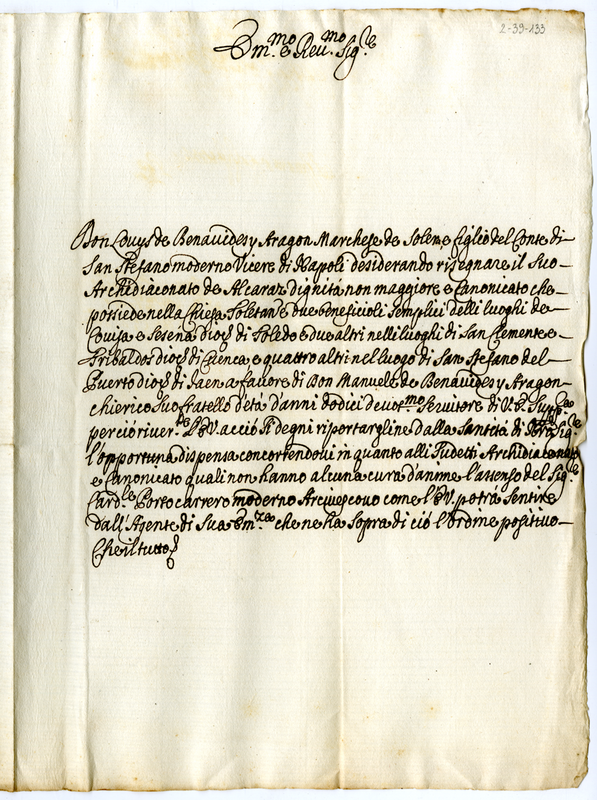 2-39-133
Em.mo e Reu.mo Sig.re
Don Luys de Benauides y Aragon Marchese de Solera, e figlio del Conte di
San Stefano moderno Vicere di Napoli desiderando risegnare il suo
Archidiaconato de Alcaraz dignità non maggiore e Canonicato che
possiede nella Chiesa Toletana e due beneficioli semplici delli luoghi de
e Seseña dioc. di Toledo e due altri nelli luoghi di San Clemente e
dioc. di Cuenca, e quattro altri nel luogo di San Stefano del
Puerto dioc. di Jaen a fauore di Don Manuele de Benauides y Aragon
chierico suo fratello d'età d'anni dodici deuot.me seruitore di V.E. supp.ca
perciò riuer.te l'E.V. acciò si degni riportargline dalla Santità di N.ro Sig.re
l'opportuna dispensa concorrendoui in quanto alli sudetti Archidiaconato
e Canonicato quali non hanno alcuna cura d'anime l'assenso del Sig.
Card.le Portocarrero moderno Arciuescouo come l'E.V. potrà sentire
dall'Agente di Sua Em.za che ne ha sopra di ciò l'ordine positiuo
Che il tutto